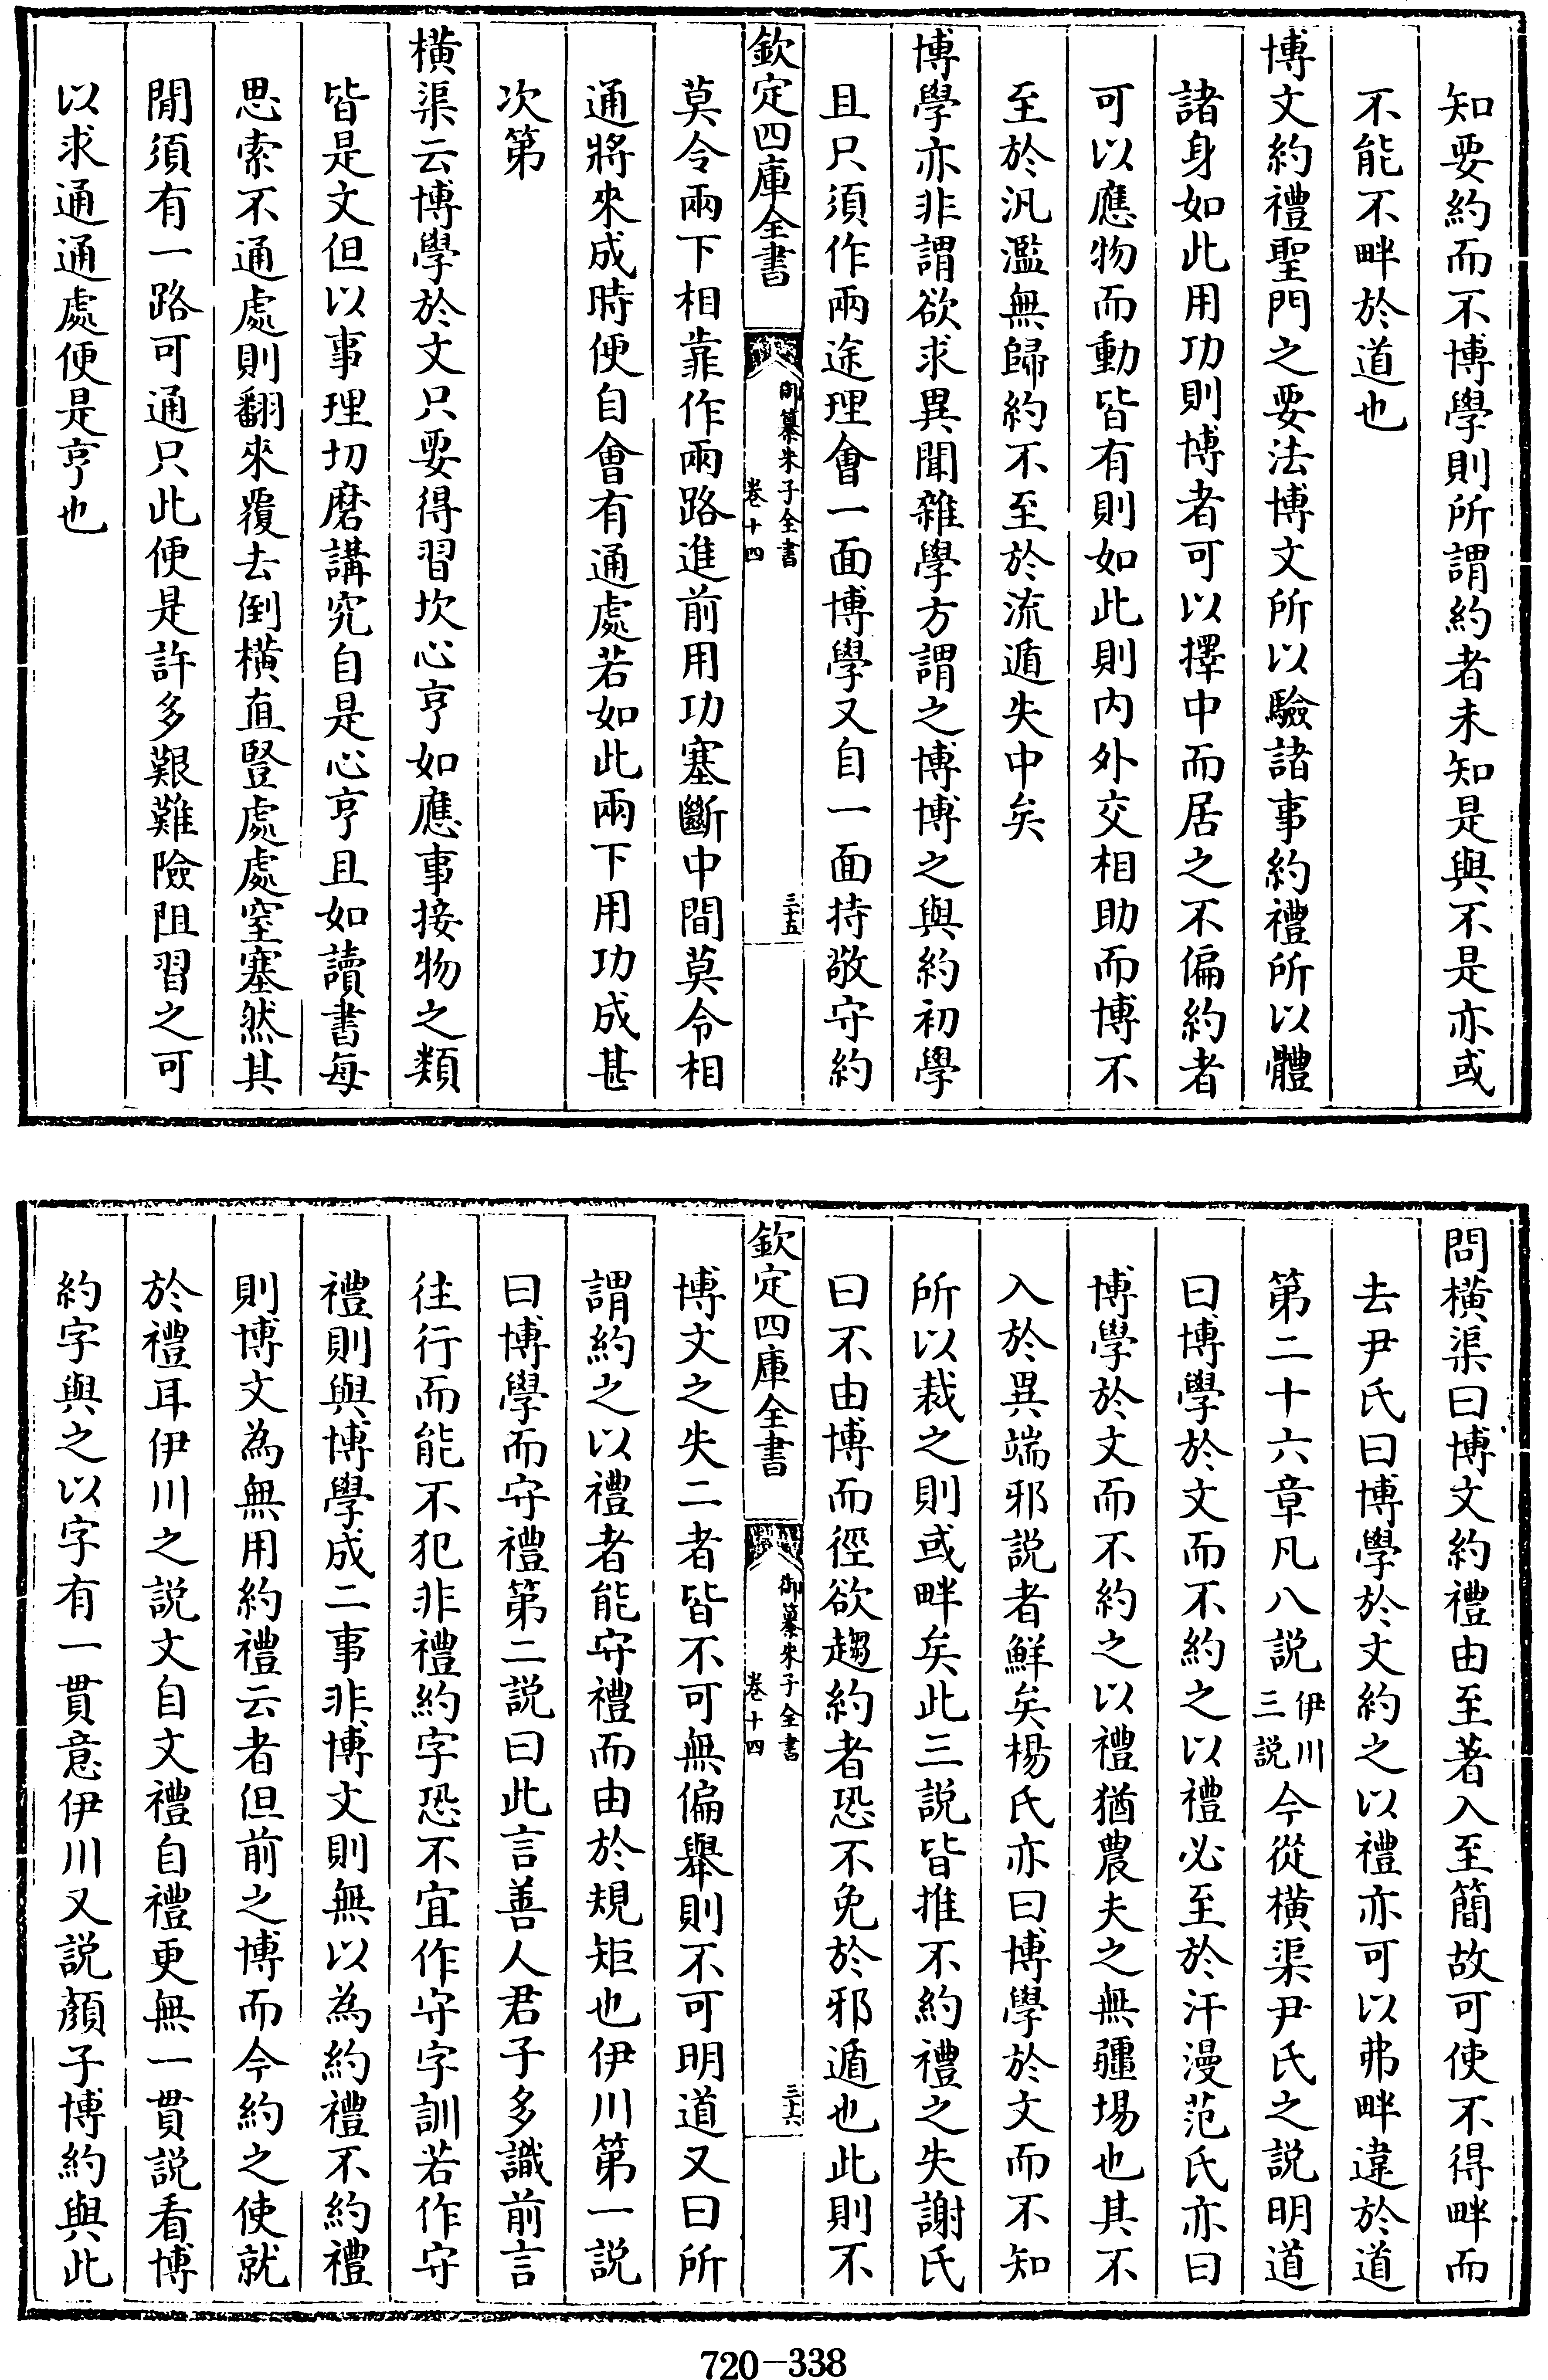 知要約而不博學則所謂約者未知是與不是亦或
不能不畔於道也
博文約禮聖門之要法博文所以驗諸事約禮所以體
諸身如此用功則博者可以擇中而居之不偏約者
可以應物而動皆有則如此則内外交相助而博不
至於汎濫無歸約不至於流遁失中矣
博學亦非謂欲求異聞雜學方謂之博博之與約初學
且只須作兩途理會一面博學又自一面持敬守約
欽定四庫全書
御纂朱子全書
卷十四
三十五
莫令兩下相靠作兩路進前用功塞斷中間莫令相
通將來成時便自會有通處若如此兩下用功成甚
次第
橫渠云博學於文只要得習坎心亨如應事接物之類
皆是文但以事理切磨講究自是心亨且如讀書每
思索不通處則翻來覆去倒橫直豎處處窒塞然其
閒須有一路可通只此便是許多艱難險阻習之可
以求通通處便是亨也
問橫渠曰博文約禮由至著入至簡故可使不得畔而
去尹氏曰博學於文約之以禮亦可以弗畔違於道
第二十六章凡八說伊川三說今從橫渠尹氏之說明道
曰博學於文而不約之以禮必至於汗漫范氏亦曰
博學於文而不約之以禮猶農夫之無疆埸也其不
入於異端邪説者鮮矣楊氏亦曰博學於文而不知
所以裁之則或畔矣此三説皆推不約禮之失謝氏
曰不由博而徑欲趨約者恐不免於邪遁也此則不
欽定四庫全書
御纂朱子全書
卷十四
三十六
博文之失二者皆不可無偏舉則不可明道又曰所
謂約之以禮者能守禮而由於規矩也伊川第一説
曰博學而守禮第二説曰此言善人君子多識前言
往行而能不犯非禮約字恐不宜作守字訓若作守
禮則與博學成二事非博文則無以為約禮不約禮
則博文為無用約禮云者但前之博而今約之使就
於禮耳伊川之説文自文禮自禮更無一貫説看博
約字與之以字有一貫意伊川又説顏子博約與此
720-338